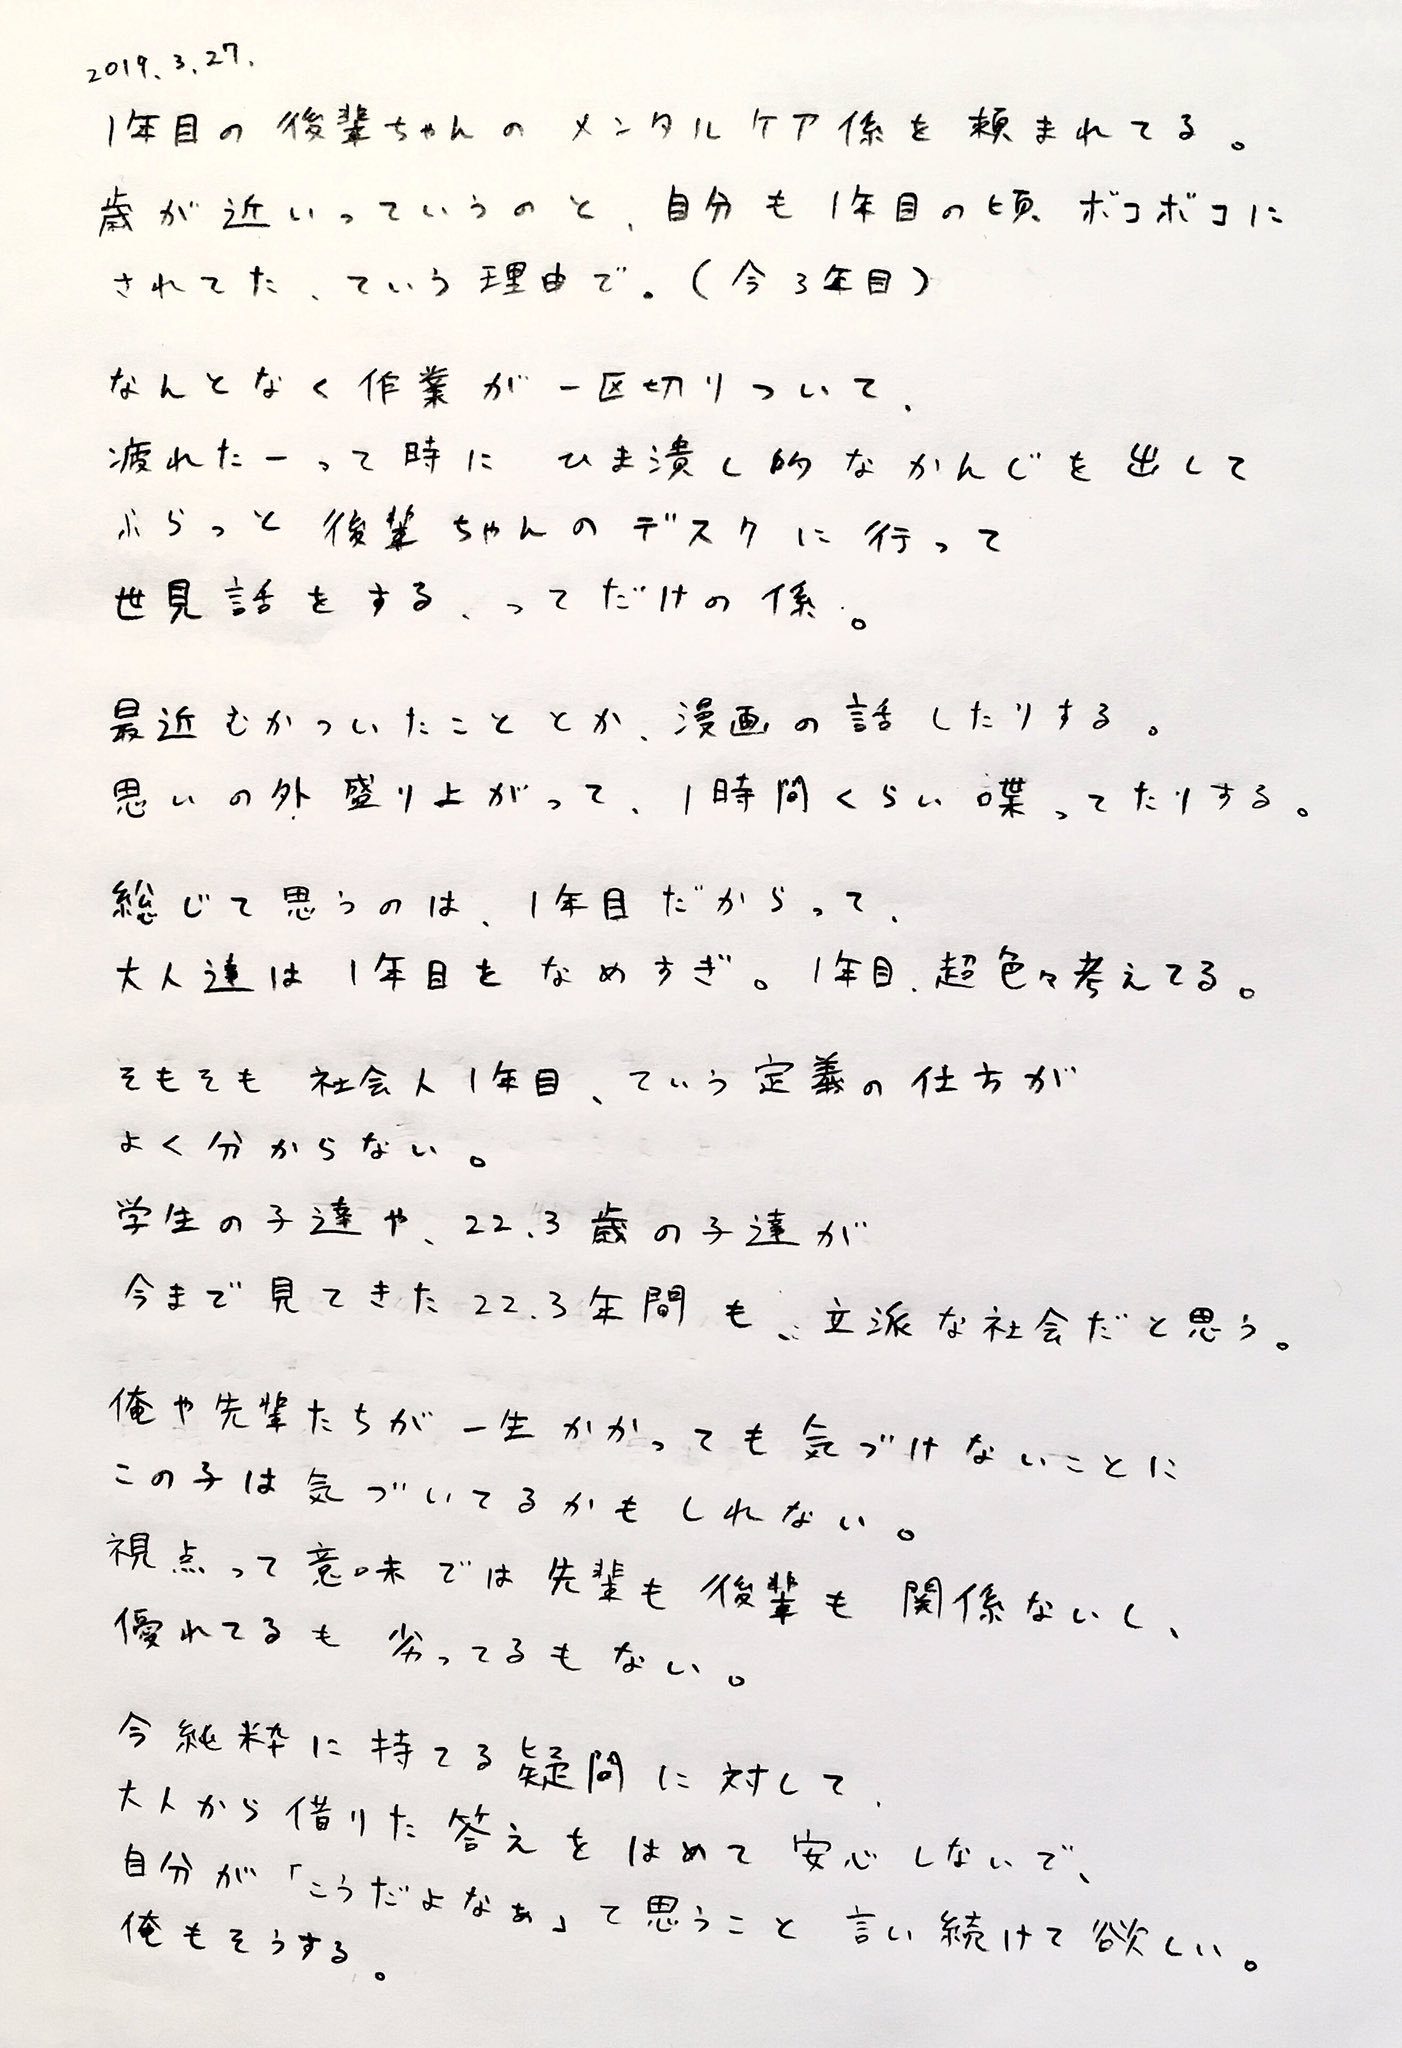 2019.3.27.
1年目の後輩ちゃんのメンタルケア係を頼まれてる。
歳が近いっていうのと、自分も1年目の頃ボコボコに
されてた、ていう理由で。(今3年目)
なんとなく作業が一区切りついて、
疲れたーって時に ひま潰し的なかんじを出して
ふらっと後輩ちゃんのデスクに行って
世見話をする、ってだけの係。
最近むかついたこととか、漫画の話したりする。
思いの外盛り上がって、1時間くらい喋ってたりする。
総じて思うのは、1年目だからって、
大人達は1年目をなめすぎ。1年目、超色々考えてる。
そもそも社会人1年目、ていう定義の仕方が
よく分からない。
学生の子達や、22.3歳の子達が
今まで見てきた22.3年間も、立派な社会だと思う。
俺や先輩たちが一生かかっても気づけないことに
この子は気づいてるかもしれない。
視点って意味では先輩も後輩も関係ないし、
優れてるも劣ってるもない。
今純粋に持てる疑問に対して、
大人から借りた答えをはめて安心しないで、
自分が「こうだよなぁ」て思うこと言い続けて欲しい。
俺もそうする。